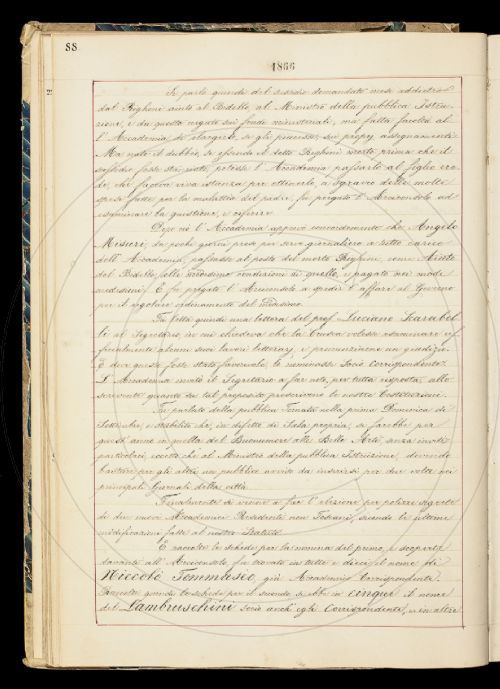 88
1866
Si parlò quindi del sussidio domandato mesi addietro
dal Righini aiuto al Bidello, al Ministro della pubblica Istru-
zione, e da questo negato sui fondi ministeriali, ma fatta facoltà al-
l'Accademia di elargirlo, se gli piacesse, sui proprj assegnamenti.
Ma nato il dubbio, se essendo il detto Righini morto prima che il
sussidio fosse stanziato, potesse l'Accademia passarlo al figlio ere-
de, che faceva viva istanza per ottenerlo, a sgravio delle molte
spese fatte per la malattia del padre, fu pregato l'Arciconsolo ad
esaminare la questione, e riferire.
Dopo ciò l'Accademia approvò concordemente che Angelo
Misuri, da pochi giorni preso per servo giornaliero a tutto carico
dell'Accademia, passasse al posto del morto Righini, come Aiuto
del Bidello, alle medesime condizioni di quello, e pagato nei modi
medesimi. E fu pregato l'Arciconsolo a spedir l'affare al Governo
per il regolare ordinamento del medesimo.
Fu letta quindi una lettera del prof. Luciano Scarabel-
li al Segretario, in cui chiedeva che la Crusca volesse esaminare uf-
ficialmente alcuni suoi lavori letterarj, e pronunziarne un giudizio.
E dove questo fosse stato favorevole, lo nominasse Socio corrispondente.
L'Accademia invitò il Segretario a far noto, per tutta risposta, allo
scrivente quanto su tal proposito prescrivono le nostre Costituzioni.
Fu parlato della pubblica Tornata nella prima Domenica di
Settembre, e stabilito che, in difetto di Sala propria, si farebbe per
quest'anno in quella del Buonumore alle Belle Arti, senza inviti
particolari, eccetto che al Ministro della pubblica Istruzione, dovendo
bastare per gli altri un pubblico avviso da inserirsi per due volte nei
principali Giornali della città.
Finalmente si venne a far l'elezione per polizze segrete
di due nuovi Accademici Residenti non Toscani, secondo le ultime
modificazioni fatte al nostro Statuto.
E raccolte le schede per la nomina del primo, e scoperte
davanti all'Arciconsolo, fu trovato in tutte e dieci il nome di
Niccolò Tommaseo, già Accademico Corrispondente.
Raccolte quindi le schede per il secondo, si ebbe in cinque il nome
del Lambruschini socio anch'egli Corrispondente, e in altre